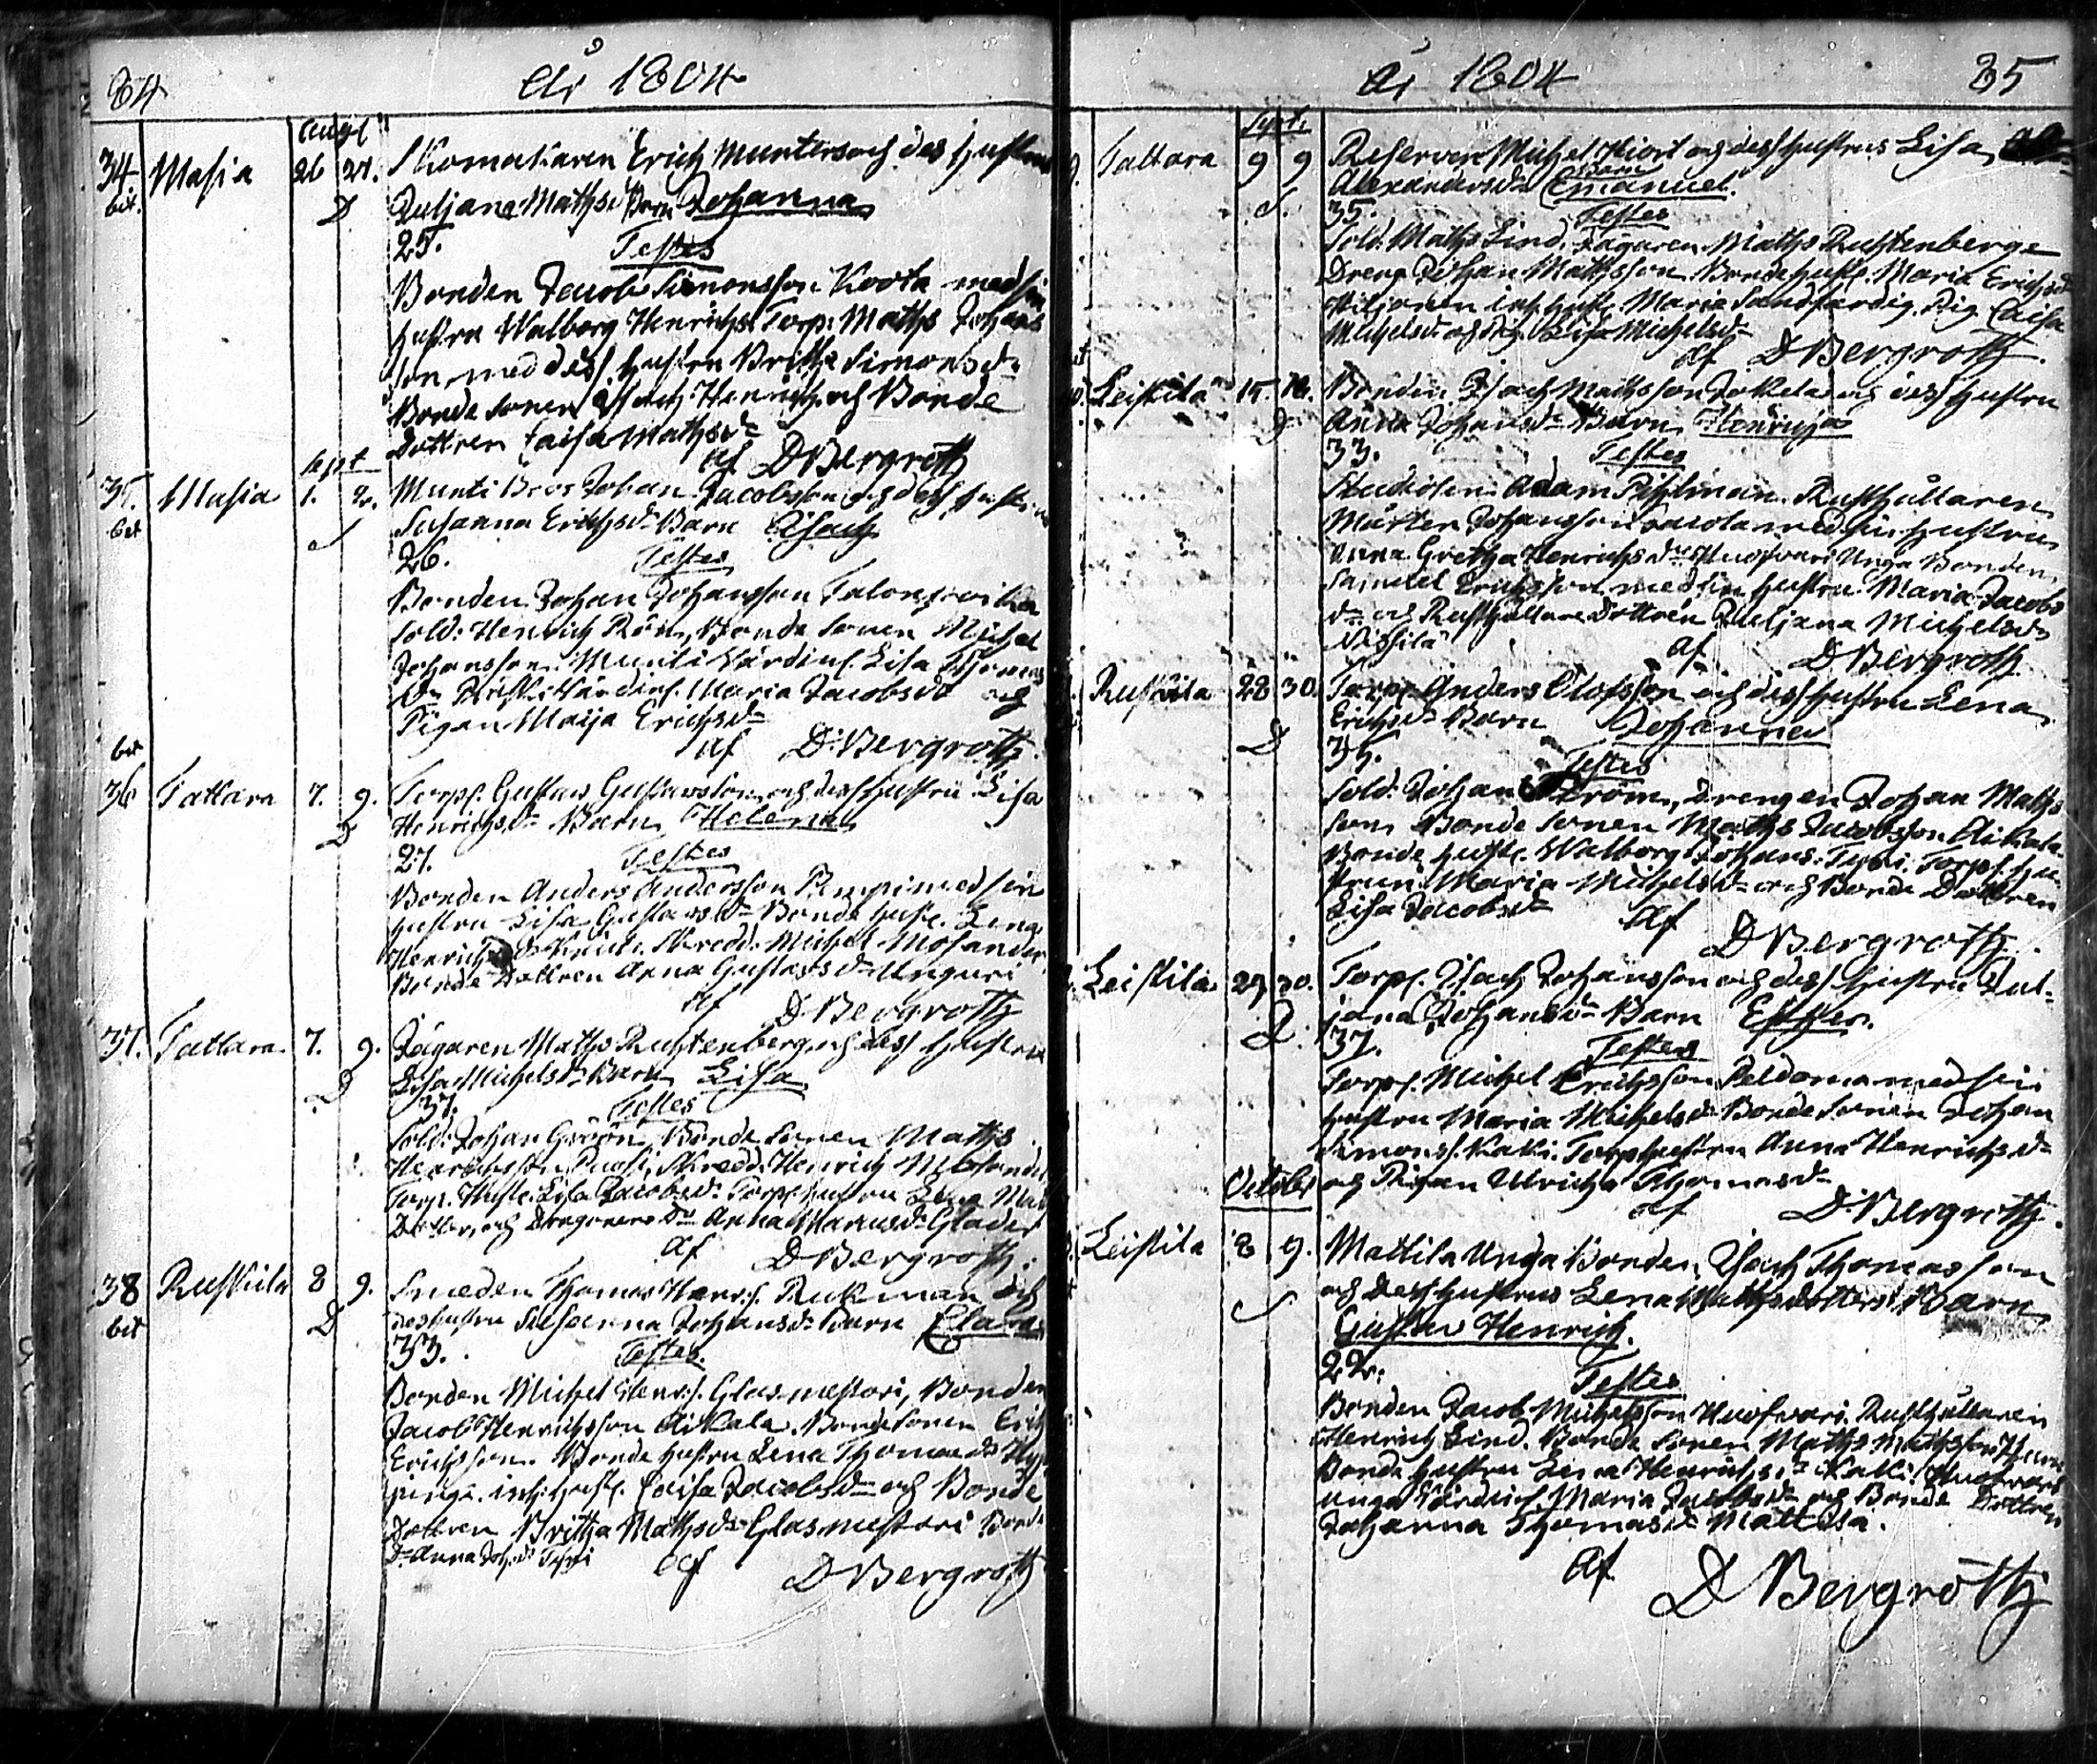 84
År 1804
Augt
34 Masia 26 27. Skomakaren Erich Munters och des hustru
bet. D Juljana Mathsd. Barn Johanna
25. Testes
Bonden Jacob Simonsson Koota med sin
hustru Walborg Henrichs Torp. Maths Johans
son, med dess hustru Britha Simonsdr
Bonde sonen Isach Henrich och Bonde
Dottren Caisa Mathsdr
af DBergroth
Sept
35. Masia 1. 2. Munti Johan Jacobsson och dess hustru
bet Susanna Erichsdr Barn Isach
26. Testes
Bonden Johan Johansson
Sold: Henrich Rön, Bonde sonen Michel
Johansson Munti Värdins. Lisa Thomas
Dr Maria Jacobsdr och
Pigan Maija Erichsdr
af D:Bergroth
bet
36 Tattara 7. 9. Torp. Gustav Gustavsson och dess hustru Lisa
D Henrichsdr Barn Helena
27. Testes
Bonden Anders Andersson Pimpi med sin
hustru Lisa Gustavsdr Bonde hust. Lena
Henrichs Skredd. Michel Mosander
Bonde Dottren Anna Gustavsdr Unguri
af DBergroth
37. Tattara 7. 9. Jägaren Maths Rustenberg och dess hustru
D Lisa Michelsdr Barn Lisa
37. Testes
Sold: Johan Gröön, Bonde sonen Maths
Henrichsson Skredd. Henrich
Torp. Hust. Lisa Jacobsdr Torp. hustru Lena
Dotter, och Dragonens Dr Anna Glader
af DBergroth.
38 Rustula 8 9. Smeden Thomas Henr:s. Rukman och
bet D des hustru Susanna Johansdr Barn Clara
33. Testes.
Bonden Michel Henr:s. Glasmestari, Bonden
Jacob Henrichsson Aikala. Bonde sonen Erich
Erichsson. Bonde hustru Lena Thomasdr
inh: hust. Caisa Jacobsdr och Bonde
Dottren Britha Mathsdr Glasmestari Bonde
Dr Anna
af DBergroth
År 1804
35
Sept.
Tattara 9 9 Reserven Michel Hiort och dess hustru Lisa
Alexandersdr Barn Emanuel.
35. Testes
Sold. Maths Lind. Jägaren Maths Rustenberg
Dreng Johan Mathsson. Bonde hust. Maria Erichsdr
inh. hust. Maria Sandfärdig. Pig. Caisa
Michelsdr och Pig. Lisa Michelsdr
af DBergroth.
Leistilä 15. 16. Bonden Isach Mathsson Jokela och dess hustru
D Anna Johansdr Barn Henrich
33. Testes
Studiosen Adam Pihlman. Rusthållaren
Mårten Johansson med sin hustru
Anna Gretha Henrichsdr Huofvari Unga Bonden
Samuel Erichsson med sin hustru Maria Jacobs
dr och Rusthållare Dottren Juljana Michelsdr
af DBergroth
Rustula 28 30. Torp. Anders Olofsson och dess hustru Lena
D Erichsdr Barn Johannes
35. Testes
Sold. Johan Ström, Drengen Johan Maths
son, Bonde sonen Maths Jacobsson Aikala
Bonde hust. Walborg Johans: Torp. hu
strun Maria Michelsdr och Bonde Dottren
Lisa Jacobsdr
af DBergroth
Leistila 29 30. Torp. Isach Johansson och dess hustru Jul-
D. jana Johansdr Barn Esther.
37. Testes
Torp. Michel Erichsson Peldoma med sin
hustru Maria Michelsdr Bonde sonen Johan
Simonss. Kaki. Torp hustru Anna Henrichsdr
och Pigan Ulricha Thomasdr
October
af D:Bergroth.
Leistila 8 9. Mattila Unga Bonden Isach Thomasson
och dess hustru Lena Mathsdotters Barn
Gustav Henrich.
22. Testes
Bonden Jacob Michelsson Huofvari. Rusthållaren
Henrich Lind. Bonde sonen Maths Mathsson
Bonde hustru Lena Henrichsdr Kaki. Huofvari
unga Värdins. Maria Jacobsdr och Bonde Dottren
Johanna Thomasdr Mattila.
af
DBergroth